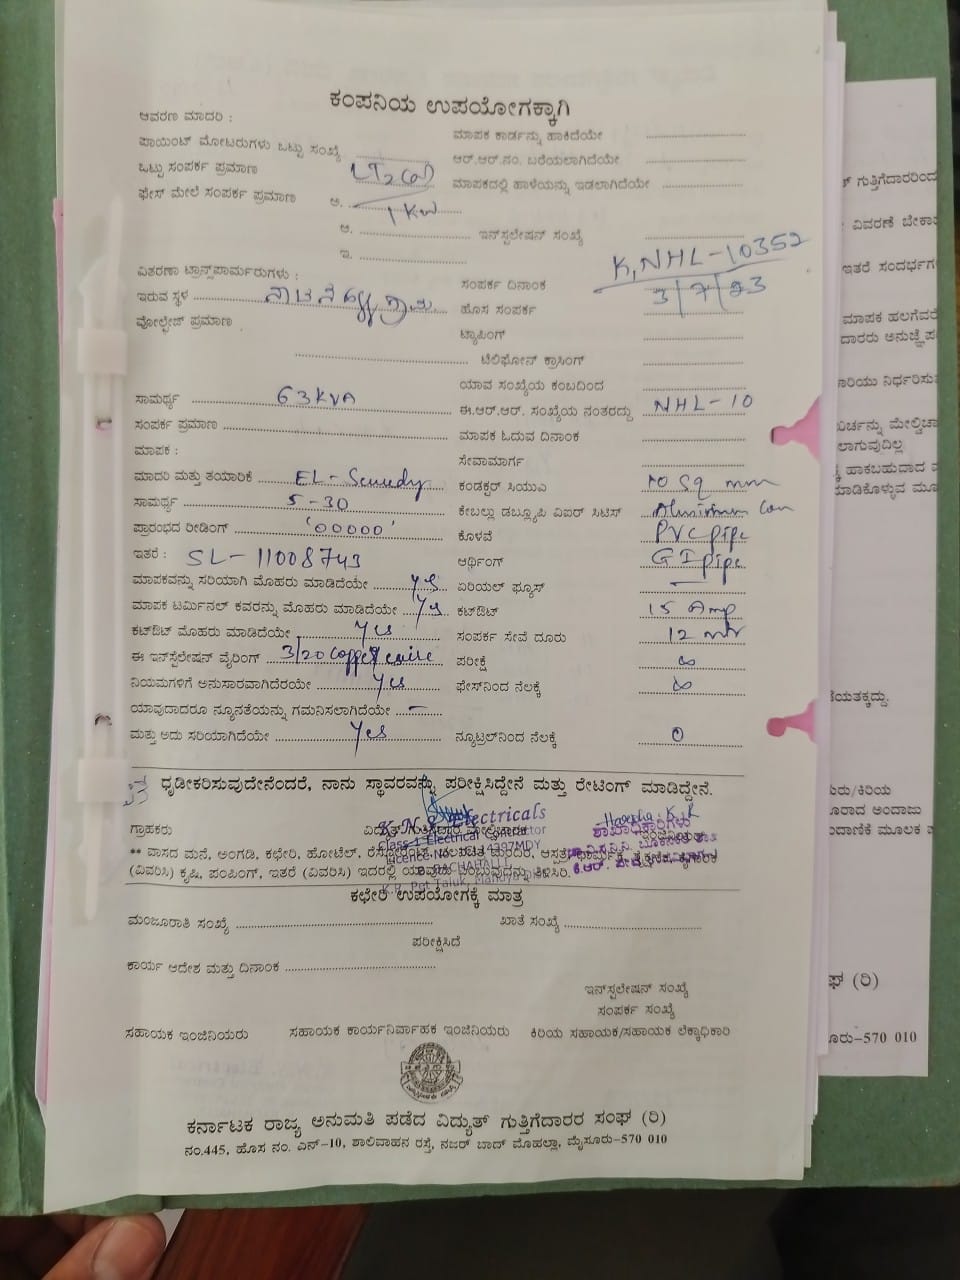 ಕಂಪನಿಯ ಉಪಯೋಗಕ್ಕಾಗಿ
ಆವರಣ ಮಾದರಿ :
ಮಾಪಕ ಕಾರ್ಡನ್ನು ಹಾಕಿದೆಯೇ
ಪಾಯಿಂಟ್ ಮೋಟರುಗಳು ಒಟ್ಟು ಸಂಖ್ಯೆ
ಆರ್.ಆರ್.ನಂ. ಬರೆಯಲಾಗಿದೆಯೇ
ಒಟ್ಟು ಸಂಪರ್ಕ ಪ್ರಮಾಣ LT2(a)
ಮಾಪಕದಲ್ಲಿ ಹಾಳೆಯನ್ನು ಇಡಲಾಗಿದೆಯೇ
ಫೇಸ್ ಮೇಲೆ ಸಂಪರ್ಕ ಪ್ರಮಾಣ ಅ. 1 KW
ಆ. ಇನ್‌ಸ್ಟಲೇಷನ್ ಸಂಖ್ಯೆ
ಇ. K,NHL-10352
ವಿತರಣಾ ಟ್ರಾನ್ಸ್‌ಪಾರ್ಮರುಗಳು :
ಸಂಪರ್ಕ ದಿನಾಂಕ 3/7/23
ಇರುವ ಸ್ಥಳ
ಹೊಸ ಸಂಪರ್ಕ
ವೋಲ್ಟೇಜ್ ಪ್ರಮಾಣ
ಟ್ಯಾಪಿಂಗ್
ಟೆಲಿಫೋನ್ ಕ್ರಾಸಿಂಗ್
ಯಾವ ಸಂಖ್ಯೆಯ ಕಂಬದಿಂದ
ಸಾಮರ್ಥ್ಯ 63KVA
ಈ.ಆರ್.ಆರ್. ಸಂಖ್ಯೆಯ ನಂತರದ್ದು NHL-10
ಸಂಪರ್ಕ ಪ್ರಮಾಣ
ಮಾಪಕ ಓದುವ ದಿನಾಂಕ
ಮಾಪಕ :
ಸೇವಾಮಾರ್ಗ
ಮಾದರಿ ಮತ್ತು ತಯಾರಿಕೆ EL-
ಕಂಡಕ್ಟರ್ ಸಿಯುಎ 10 Sq mm
ಸಾಮರ್ಥ್ಯ 5-30
ಕೇಬಲ್ಲು ಡಬ್ಲ್ಯೂಪಿ ಎಐರ್ ಸಿಟಿಸ್ Aluminium
ಪ್ರಾರಂಭದ ರೀಡಿಂಗ್ '00000'
ಕೊಳವೆ PVC pipe
ಇತರೆ : SL-11008743
ಆರ್ಥಿಂಗ್ GI pipe
ಮಾಪಕವನ್ನು ಸರಿಯಾಗಿ ಮೊಹರು ಮಾಡಿದೆಯೇ yes
ಏರಿಯಲ್ ಫ್ಯೂಸ್ —
ಮಾಪಕ ಟರ್ಮಿನಲ್ ಕವರನ್ನು ಮೊಹರು ಮಾಡಿದೆಯೇ yes
ಕಟ್‌ಔಟ್ 15 Amp
ಕಟ್‌ಔಟ್ ಮೊಹರು ಮಾಡಿದೆಯೇ yes
ಸಂಪರ್ಕ ಸೇವೆ ದೂರು 12 mtr
ಈ ಇನ್‌ಸ್ಟಲೇಷನ್ ವೈರಿಂಗ್ 3/20 Copper wire
ಪರೀಕ್ಷೆ ∞
ನಿಯಮಗಳಿಗೆ ಅನುಸಾರವಾಗಿದೆರಯೇ yes
ಫೇಸ್‌ನಿಂದ ನೆಲಕ್ಕೆ ∞
ಯಾವುದಾದರೂ ನ್ಯೂನತೆಯನ್ನು ಗಮನಿಸಲಾಗಿದೆಯೇ —
ಮತ್ತು ಅದು ಸರಿಯಾಗಿದೆಯೇ Yes
ನ್ಯೂಟ್ರಲ್‌ನಿಂದ ನೆಲಕ್ಕೆ 0
ಧೃಡೀಕರಿಸುವುದೇನೆಂದರೆ, ನಾನು ಸ್ಥಾವರವನ್ನು ಪರೀಕ್ಷಿಸಿದ್ದೇನೆ ಮತ್ತು ರೇಟಿಂಗ್ ಮಾಡಿದ್ದೇನೆ.
K.N.S Electricals
Harsha K.K
ಗ್ರಾಹಕರು
ವಿದ್ಯುತ್ ಗುತ್ತಿಗೆದಾರ
ಶಾಖಾಧಿಕಾರಿಗಳು
Class-1 Electrical Contractor
** ವಾಸದ ಮನೆ, ಅಂಗಡಿ, ಕಛೇರಿ, ಹೋಟೆಲ್,
(ವಿವರಿಸಿ) ಕೃಷಿ, ಪಂಪಿಂಗ್, ಇತರೆ (ವಿವರಿಸಿ) ಇದರಲ್ಲಿ ಯಾವುದು ಎಂಬುದನ್ನು ತಿಳಿಸಿರಿ.
K.R. Pet Taluk, Mandya Dist
ಕಛೇರಿ ಉಪಯೋಗಕ್ಕೆ ಮಾತ್ರ
ಮಂಜೂರಾತಿ ಸಂಖ್ಯೆ
ಖಾತೆ ಸಂಖ್ಯೆ
ಪರೀಕ್ಷಿಸಿದೆ
ಕಾರ್ಯ ಆದೇಶ ಮತ್ತು ದಿನಾಂಕ
ಇನ್‌ಸ್ಟಲೇಷನ್ ಸಂಖ್ಯೆ
ಸಂಪರ್ಕ ಸಂಖ್ಯೆ
ಸಹಾಯಕ ಇಂಜಿನಿಯರು ಸಹಾಯಕ ಕಾರ್ಯನಿರ್ವಾಹಕ ಇಂಜಿನಿಯರು ಕಿರಿಯ ಸಹಾಯಕ/ಸಹಾಯಕ ಲೆಕ್ಕಾಧಿಕಾರಿ
ಕರ್ನಾಟಕ ರಾಜ್ಯ ಅನುಮತಿ ಪಡೆದ ವಿದ್ಯುತ್ ಗುತ್ತಿಗೆದಾರರ ಸಂಘ (ರಿ)
ನಂ.445, ಹೊಸ ನಂ. ಎನ್-10, ಶಾಲಿವಾಹನ ರಸ್ತೆ, ನಜರ್ ಬಾದ್ ಮೊಹಲ್ಲಾ, ಮೈಸೂರು-570 010